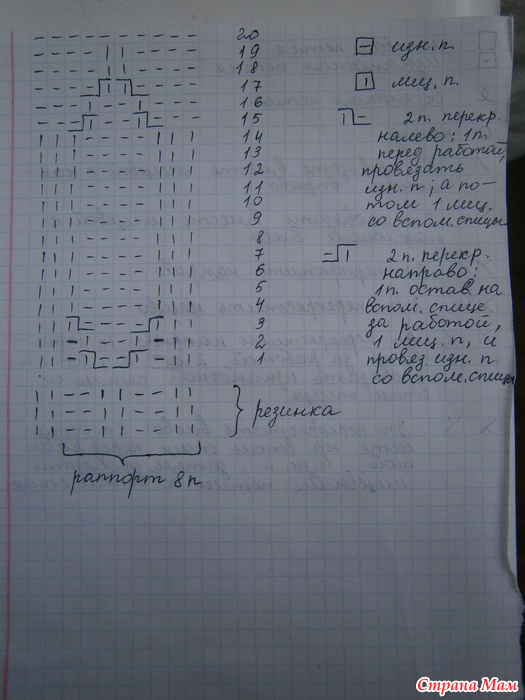 20
19
18
17
16
15
14
13
12
11
10
9
8
7
6
5
4
3
2
1
изн. п.
лиц. п.
2п. перекр.
налево: 1п.
перед работой,
провязать
изн. п, а по-
том 1 лиц.
со вспом. спицы
2п. перекр.
направо:
1п. остав на
вспом. спице
за работой,
1 лиц. п, и
провяз. изн. п
со вспом. спицы
резинка
раппорт 8п
Страна Мам